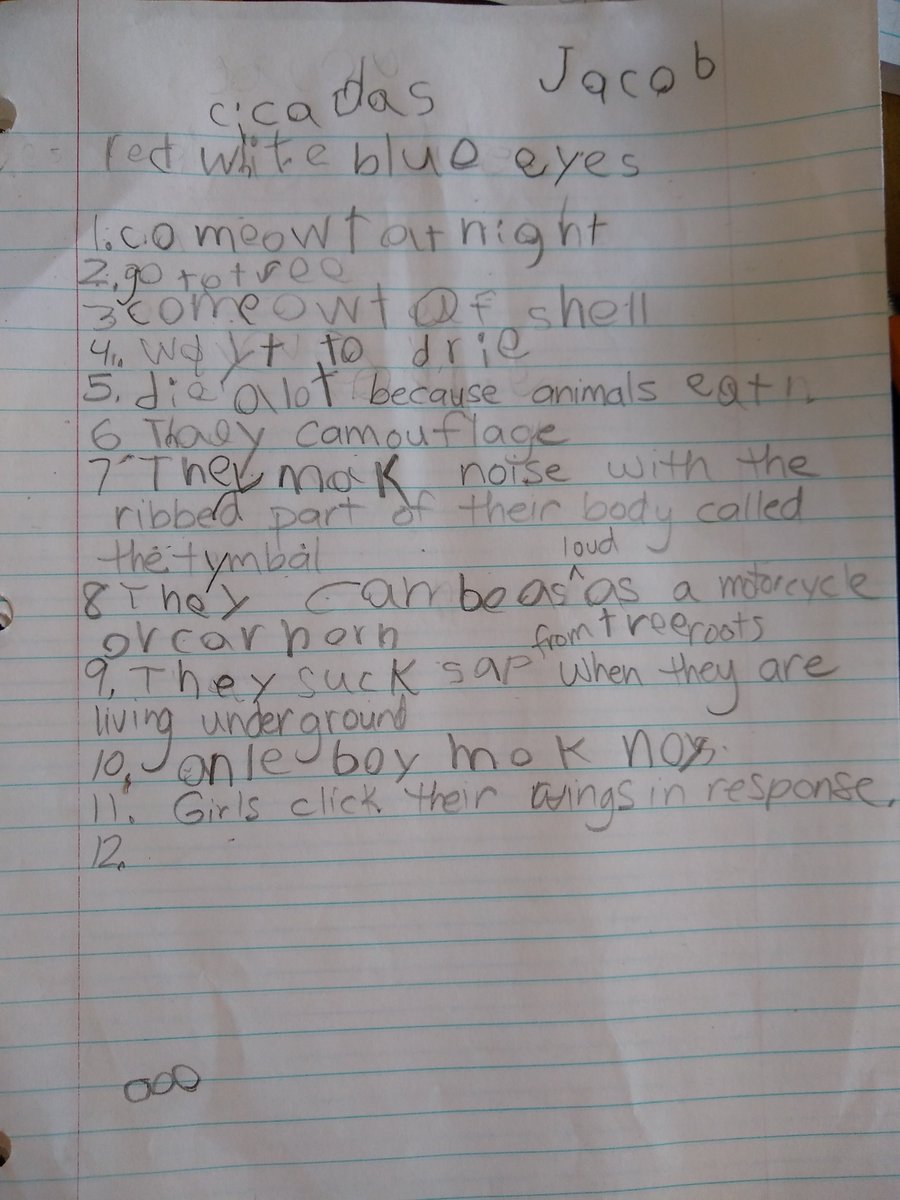 Jacob
cicadas
red white blue eyes
1. come owt at night
2. go to tree
3 come owt of shell
4. wayt to drie
5. die alot because animals eat
6 Thaey camouflage
7 They mak noise with the
ribbed part of their body called
the tymbal
8 They can be as loud as a motorcycle
or car horn
9. They suck sap from tree roots when they are
living underground
10, onle boy mak noys.
11. Girls click their wings in response.
12.